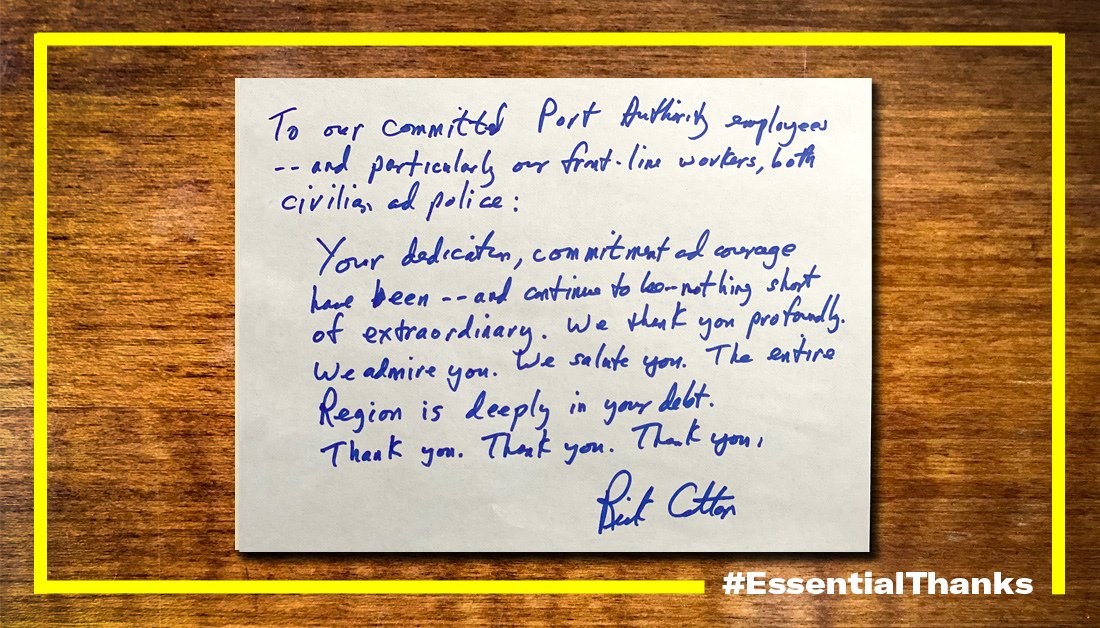 To our committed Port Authority employees
-- and particularly our front-line workers, both
civilian ad police:
Your dedication, commitment ad courage
have been -- and continue to be - nothing short
of extraordinary. We thank you profoundly.
We admire you. We salute you. The entire
Region is deeply in your debt.
Thank you. Thank you. Thank you.
Rick Cotton
#EssentialThanks